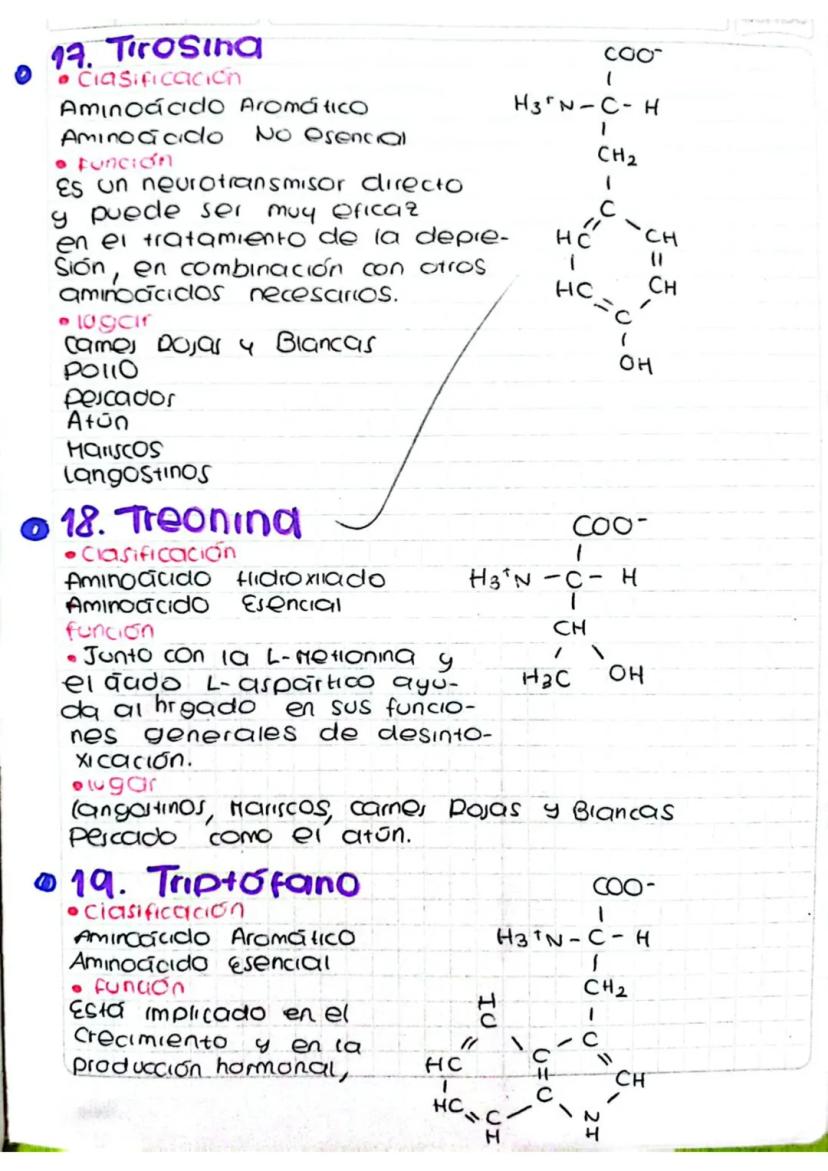 17. Tirosina
• Clasificación
Aminoácido Aromático
Aminoácido No esencial
• función
Es un neurotransmisor directo
y puede ser muy eficaz
en el tratamiento de la depre-
sión, en combinación con otros
aminoácidos necesarios.
• lugar
Carnes Rojas y Blancas
Pollo
Pescados
Atún
Mariscos
Langostinos
COO-
H3+N-C-H
CH2
C
HC CH
HC CH
C
OH
18. Treonina
• Clasificación
Aminoácido Hidroxilado
Aminoácido Esencial
función
• Junto con la L-Metionina y
el ácido L-aspártico ayu-
da al hrgado en sus funcio-
nes generales de desinto-
xicación.
• lugar
langostinos, Mariscos, carnes Rojas y Blancas
Pescado como el atún.
COO-
H3+N-C-H
CH
H3C OH
19. Triptófano
• Clasificación
Aminoácido Aromático
Aminoácido Esencial
• función
Está implicado en el
crecimiento y en la
producción hormonal,
COO-
H3+N-C-H
CH2
H
C
C C
HC CH
C
HC C
H
N
H